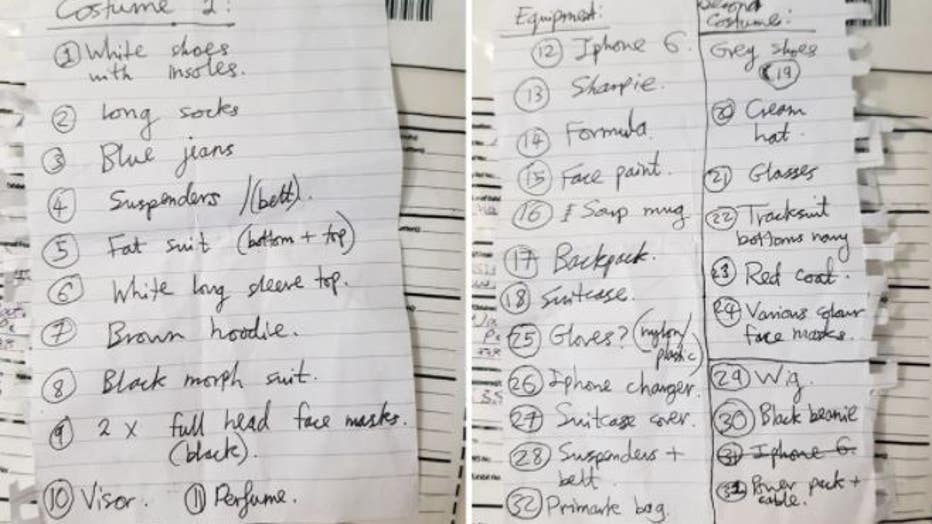 Costume 2:
① White shoes
with insoles.
② Long socks
③ Blue jeans
④ Suspenders /(belt).
⑤ Fat suit (bottom + top)
⑥ White long sleeve top.
⑦ Brown hoodie.
⑧ Black morph suit.
⑨ 2 x full head face masks.
(black).
⑩ Visor. ⑪ Perfume.
Equipment:
⑫ Iphone 6.
⑬ Sharpie.
⑭ Formula.
⑮ Face paint.
⑯ Soup mug
⑰ Backpack.
⑱ Suitcase.
㉕ Gloves? (nylon/
plastic)
㉖ Iphone charger.
㉗ Suitcase cover.
㉘ Suspenders +
belt.
㉜ Primark bag.
Second
Costume:
Grey shoes
⑲
⑳ Cream
hat.
㉑ Glasses
㉒ Tracksuit
bottoms navy
㉓ Red coat.
㉔ Various colour
face masks.
㉙ Wig.
㉚ Black beanie
㉛ Iphone 6
Power pack +
cable.